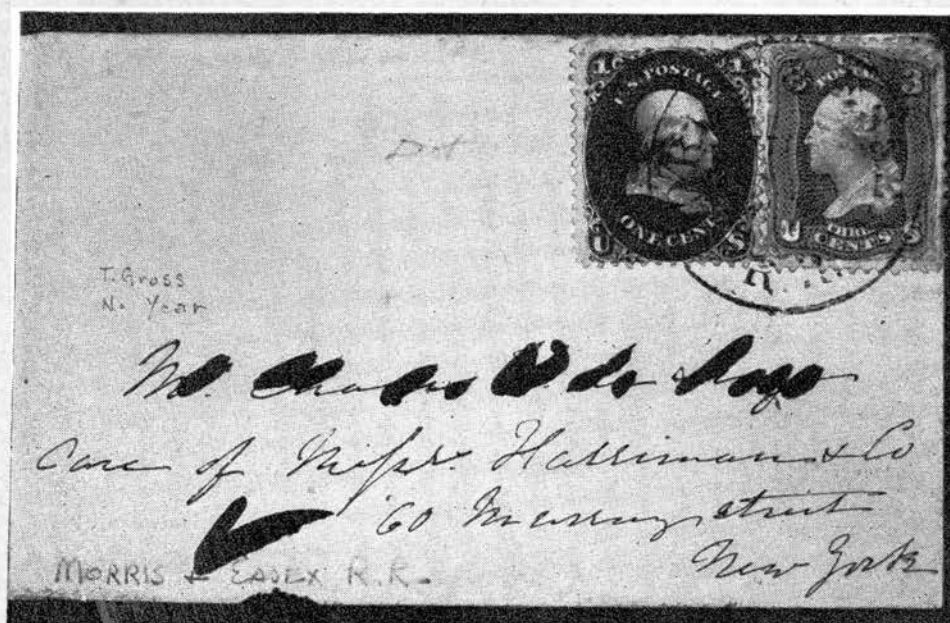 U.S. POSTAGE
ONE CENT
U S
3 3
U.S.
POSTAGE
THREE
CENTS
U S
R.R.
Dot
T. Gross
No Year
Mr. Charles
Care of Messrs. Harriman & Co
60 Murray street
New York
MORRIS & ESSEX R.R.